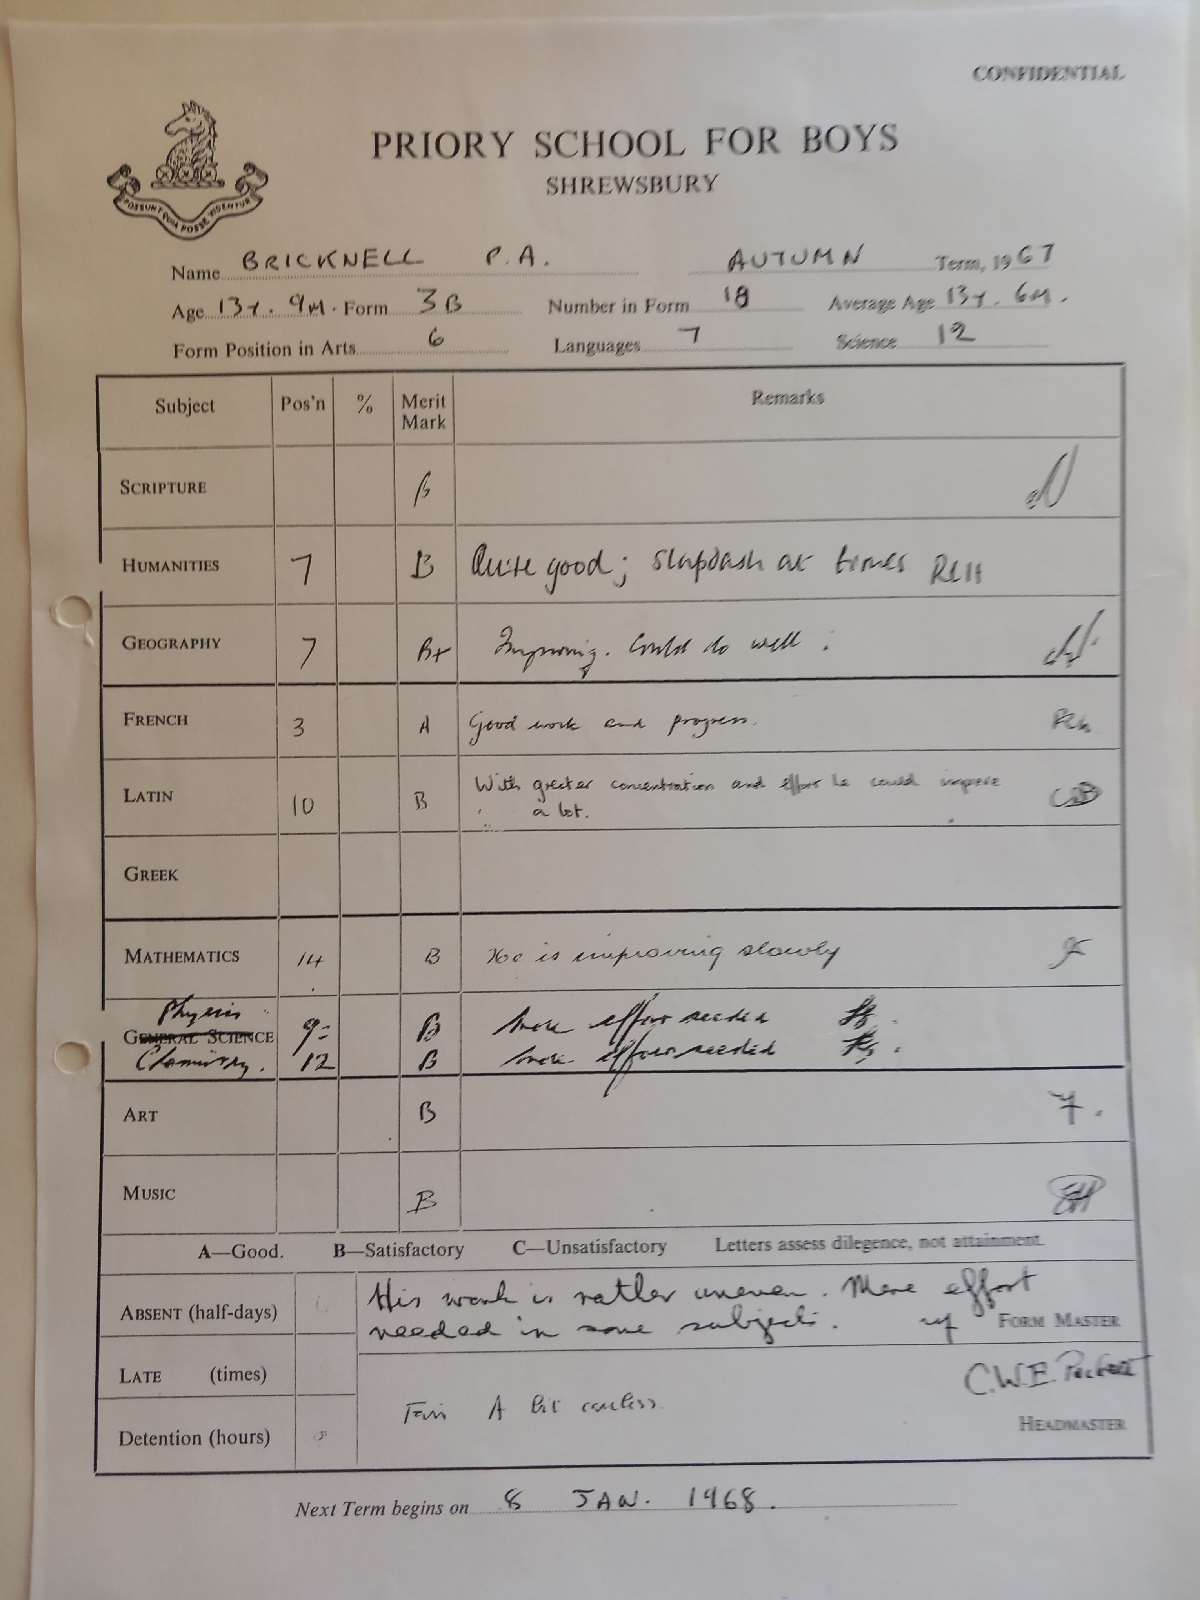 CONFIDENTIAL
PRIORY SCHOOL FOR BOYS
SHREWSBURY
POSSUNT QUIA POSSE VIDENTUR
Name BRICKNELL P.A. AUTUMN Term, 1967
Age 13y. 9M. Form 3B Number in Form 18 Average Age 13y. 6M.
Form Position in Arts 6 Languages 7 Science 12
Subject Pos'n % Merit Mark Remarks
SCRIPTURE B
HUMANITIES 7 B Quite good; slapdash at times RLH
GEOGRAPHY 7 B+ Improving. Could do well.
FRENCH 3 A Good work and progress.
LATIN 10 B With greater concentration and effort he could improve
a lot.
GREEK
MATHEMATICS 14 B He is improving slowly
Physics 9= B More effort needed
GENERAL SCIENCE
Chemistry. 12 B More effort needed
ART B
MUSIC B
A—Good. B—Satisfactory C—Unsatisfactory Letters assess dilegence, not attainment.
ABSENT (half-days) His work is rather uneven. More effort
needed in some subjects. FORM MASTER
LATE (times)
C.W.E. Peckett
Fair A bit careless.
Detention (hours) HEADMASTER
Next Term begins on 8 JAN. 1968.